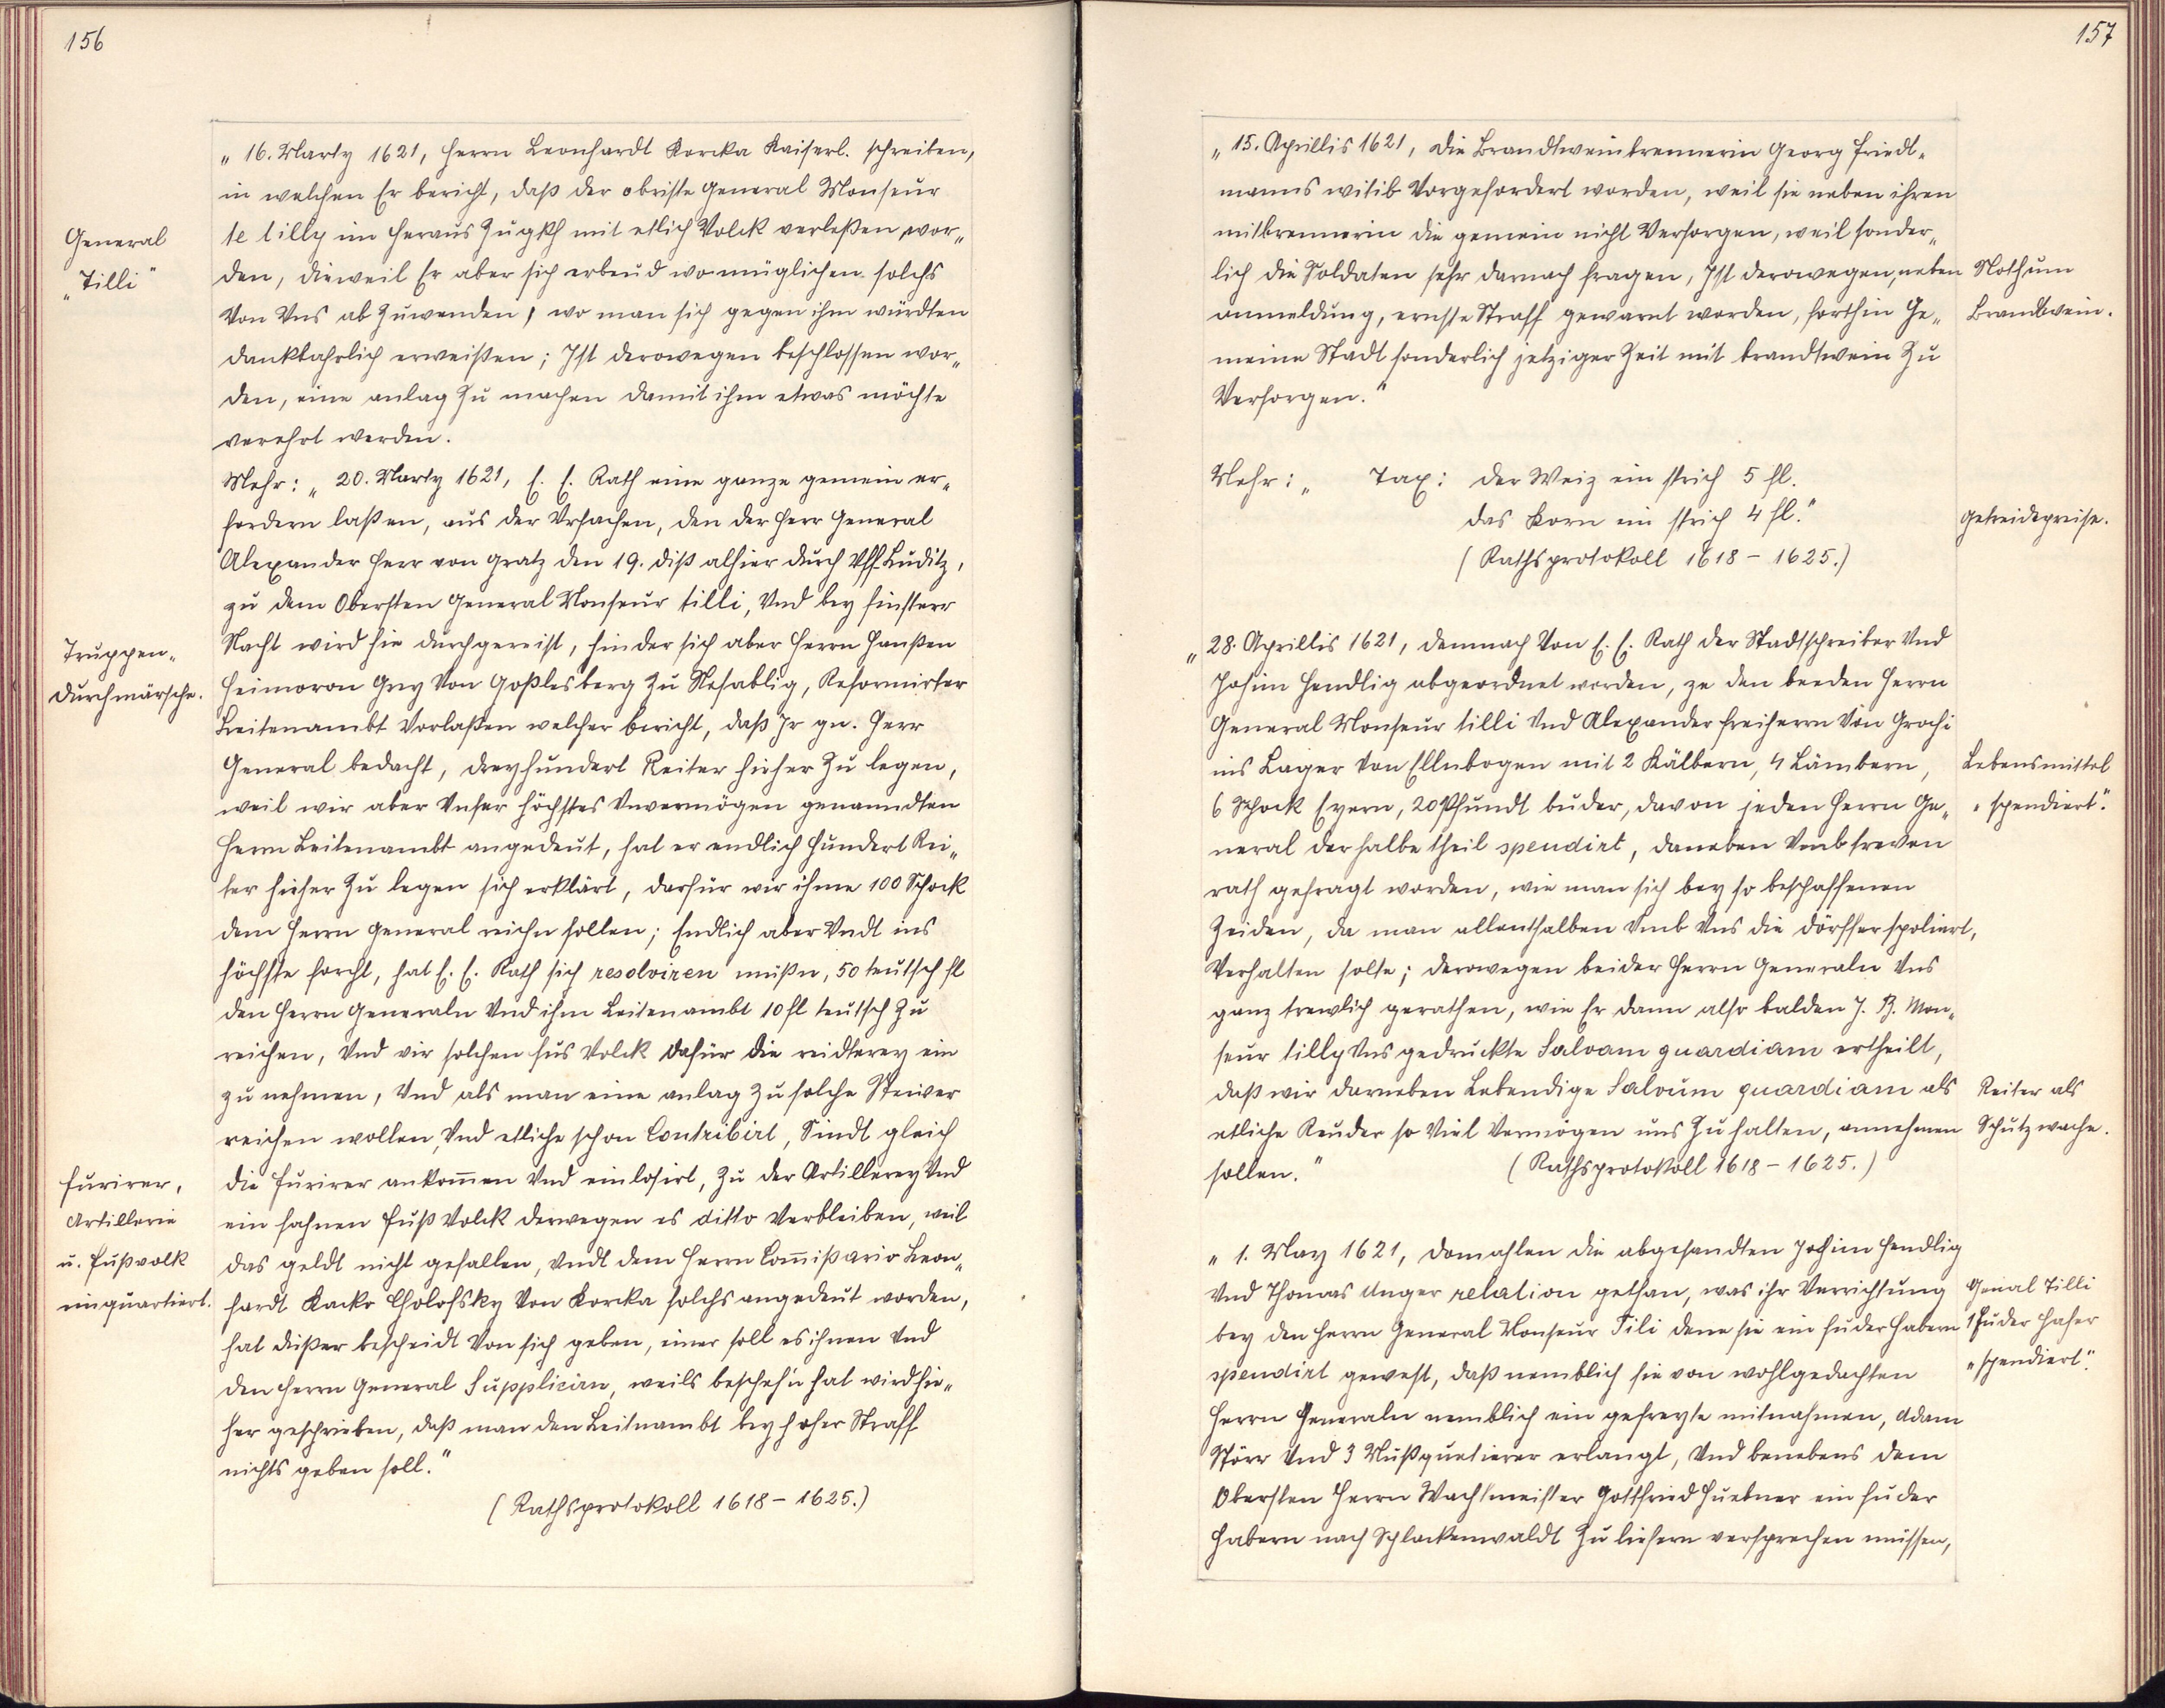 156
„16. Marty 1621, Herrn Leonhardt Korcka Kaiserl. schreiben,
in welchen Er bericht, daß der obriste General Monseur
te tilly im heraus Zugkh mit etlich Volck verleßen wor„
den, dieweil Er aber sich erbeud wo müglichen solchs
Von Vns ab Zuwenden, wo man sich gegen ihm würdten
dankbahrlich erweißen; Ist derowegen beschlossen wor„
den, eine anlag Zu machen damit ihm etwas möchte
verehrt werden.
General
„Tilli"
Mehr: „20. Marty 1621, E. E. Rath eine ganze gemein er„
fordern laßen, aus der Vrsachen, den der Herr General
Alexander Herr von Gratz den 19. diß alhier durch Vff Luditz,
zu dem Obersten General Monseur tilli, Vnd bey finsterr
Nacht wird hie durchgereist, hinder sich aber Herrn Hanßen
Heimoron Grey Von Goßlesberg Zu Nesablig, Reformirter
Leitenambt Vorlaßen welcher bericht, daß Ir gn. Herr
General bedacht, dreyhundert Reiter hieher Zu legen,
weil wir aber Vnser höchstes Vnvermögen genanndten
Herrn Leitenambt angedeut, hat er endlich hundert Rei„
ter hieher Zu legen sich erklärt, darfür wir ihme 100 Schock
dem Herrn General reichn sollen; Endlich aber Vndt ins
höchste forcht, hat E. E. Rath sich resolviren müßn, 50 teutsch fl
den Herrn Generaln Vnd ihm Leitenambt 10 fl teutsch Zu
reichen, Vnd vir solchen fus Volck dafür die reidterey ein
zu nehmen, Vnd als man eine anlag Zu solche Steiver
reichen wollen, Vnd etliche schon Contribirt, Sindt gleich
die Furirer ankom̄en Vnd einlosirt, Zu der Artillerey Vnd
ein fahnen fuß Volck derwegen es ditto Verbleiben, weil
das geldt nicht gefallen, Vndt dem Herrn Com̄ißario Leon„
hardt Kacko Cholofsky Von Korcka solchs angedeut worden,
hat dißer bescheidt Von sich geben, einer soll es ihnen Vnd
den Herrn General Supplicirn, weils beschehn hat wird hie„
her geschrieben, daß man den Leitnambt bey hoher Straff
nichts geben soll."
(Rathsprotokoll 1618 – 1625.)
Truppen„
durchmärsche.
Furirer,
Artillerie
u. Fußvolk
einquartiert.
157
„15. Aprillis 1621, die Brandtweinbrennerin Georg Friedt„
manns witib Vorgefordert worden, weil sie neben ihren
mitbrennerin die gemein nicht Versorgen, weil sonder„
lich die Soldaten sehr darnach fragen, Ist derowegen, neben
anmeldung, ernste Straff gewarnt worden, forthin Ge„
meine Stadt sonderlich jetziger Zeit mit brandtwein Zu
Versorgen."
Noth um
Brandwein.
Mehr: „ Tax: der Weiz ein strich 5 fl.
das Korn ein strich 4 fl."
(Rathsprotokoll 1618 – 1625.)
Getreidepreise.
„28. Aprillis 1621, demnach Von E. E. Rath der Stadtschreiber Vnd
Johim Hendlig abgeordnet worden, ze den beeden Herrn
General Monseur tilli Vnd Alexander Freiherrn Von Grochi
ins Lager Von Ellnbogen mit 2 Kälbern, 4 Lämbern,
6 Schock Eyern, 20 Pfundt buder, davon jeden Herrn Ge„
neral der halbe theil spendirt, daneben Vmb treven
rath gefragt worden, wie man sich bey so beschaffenen
Zeiden, da man allenthalben Vmb Vns die dörffer spoliert,
Verhalten solte; derowegen beider Herrn Generaln Vns
ganz trewlich gerathen, wie Er dann also balden J. B. Mon„
seur tilly Vns gedruckte Salvam guardiam ertheilt,
daß wir darneben Lebendige Salvum guardiam als
etliche Reuder so Viel Vermögen uns Zu halten, annehmen
sollen." (Rathsprotokoll 1618 – 1625.)
Lebensmittel
„spendiert".
Reiter als
Schutzwache.
„1. May 1621, domahlen die abgesandten Johim Hendlig
Vnd Thomas Unger relation gethan, was ihr Verrichtung
bey den Herrn General Monseur Tili deme sie ein fuder Habern
spendirt gewest, daß nemblich sie von wohlgedachten
Herrn Generaln nemblich ein gefreyte mitnahmen, Adam
Störr Vnd 3 Mußquetierer erlangt, Vnd benebens dem
Obersten Herrn Wachtmeister Gottfried Huebner ein fuder
Habern nach Schlackenwaldt Zu liefern versprechen müssen,
General Tilli
1 Fuder Hafer
„spendiert".